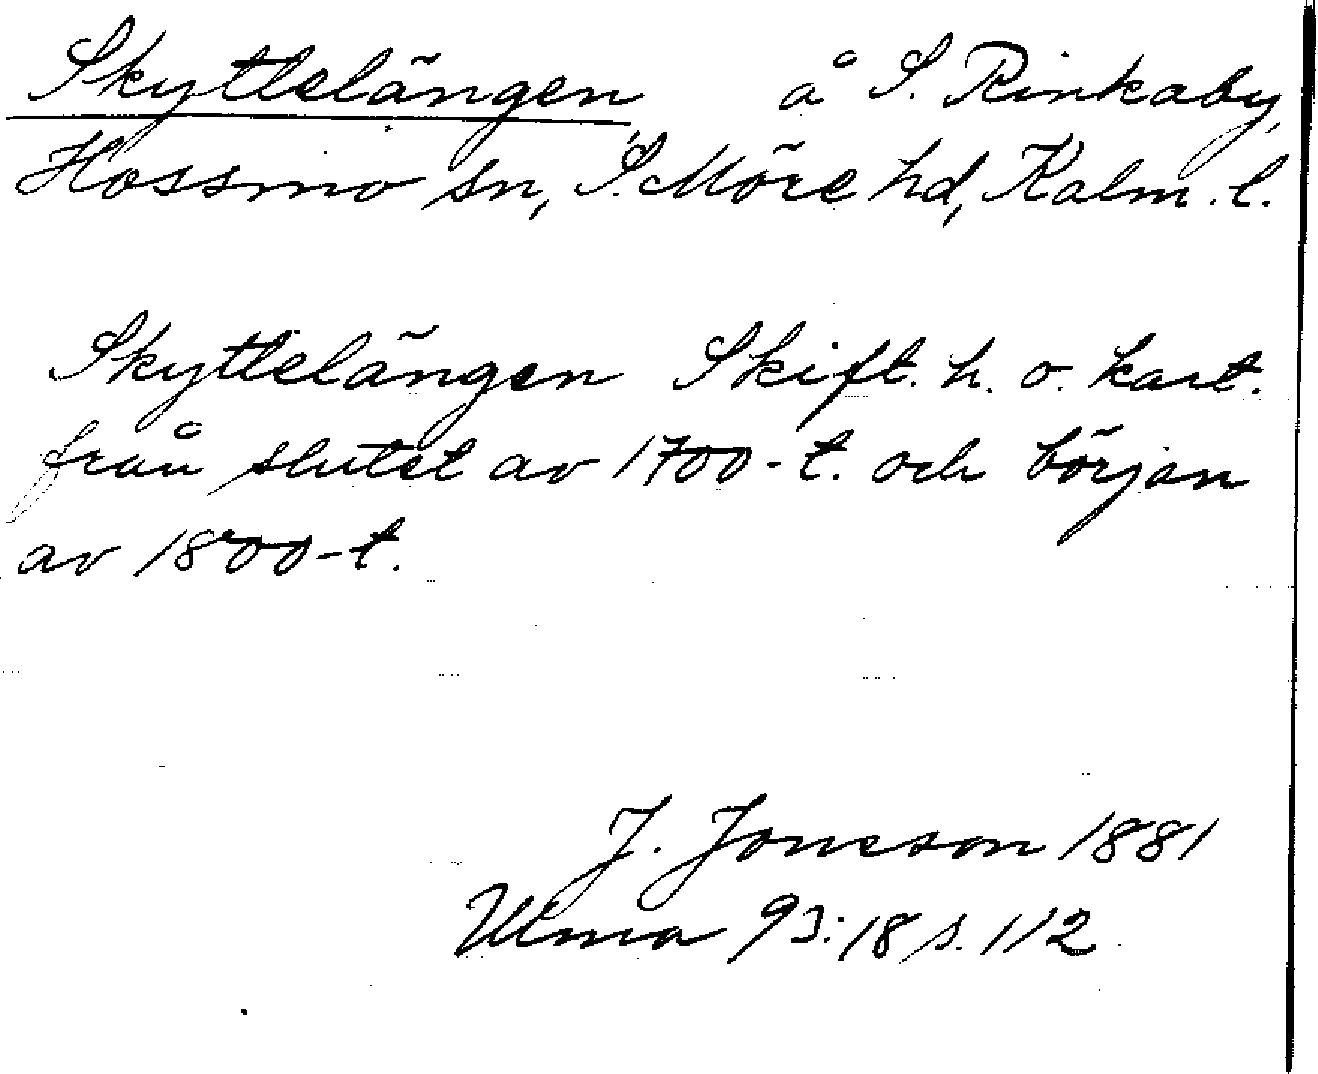 Skyttelängen å S. Rinkaby,
Hossmo sn, S. Möre hd, Kalm. l.
Skyttelängen Skift. h. o. kart.
från slutet av 1700-t. och början
av 1800-t.
J. Joneson 1881
Ulma 93:18 s. 112